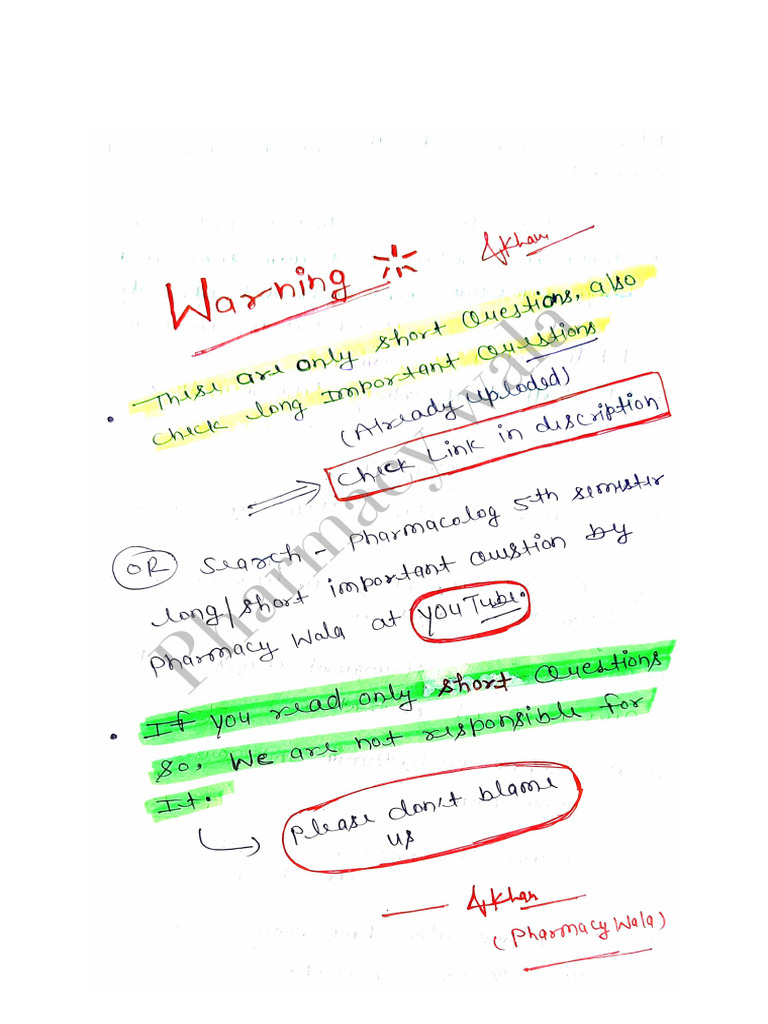 Warning
AKhan
These are only short Questions, also
check long Important Questions
(Already uploded)
Check Link in discription
OR Search - Pharmacolog 5th semister
long/short important Qustion by
Pharmacy Wala at YouTube.
If you read only short Questions
so, We are not responsible for
It.
Please don't blame
us
AKhan
(Pharmacy Wala)
Pharmacy wala